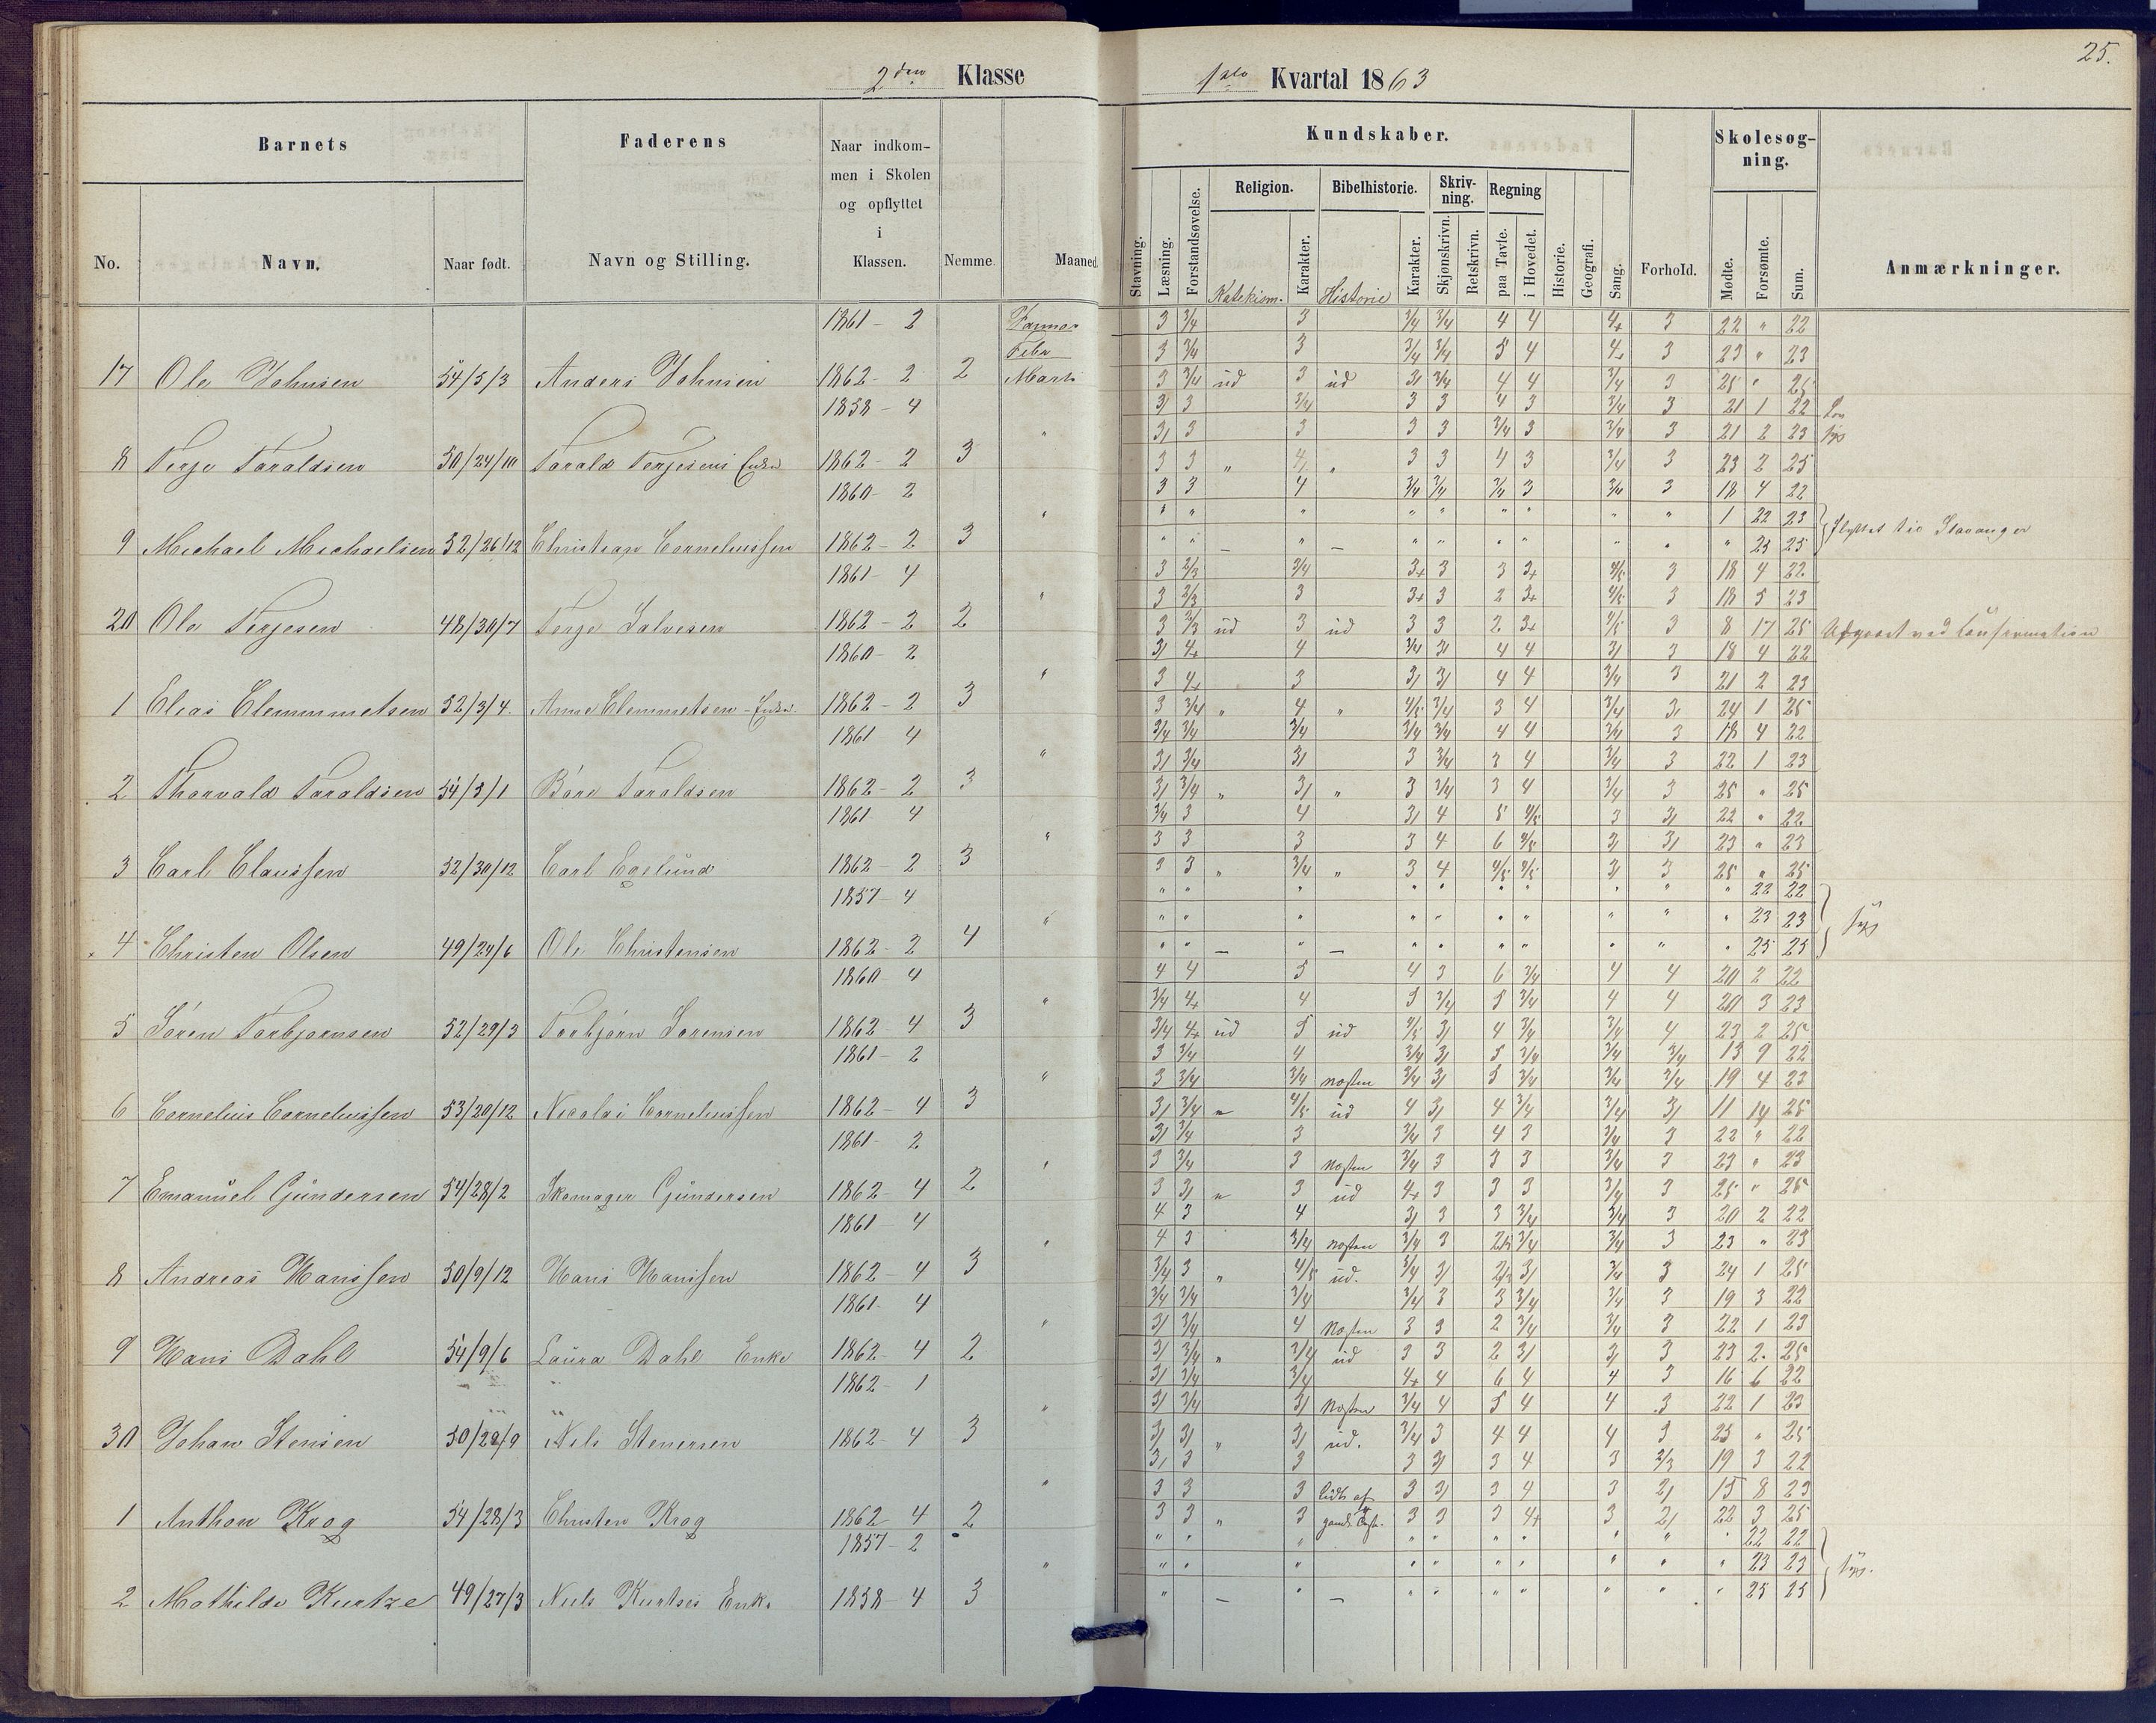 25.
2den Klasse
1ste Kvartal 1863
Barnets
Faderens
Naar indkommen i Skolen og opflyttet i Klassen.
Nemme
Maaned
No.
Navn.
Naar født.
Navn og Stilling.
Kundskaber.
Stavning.
Læsning.
Forstandsøvelse.
Religion.
Katekism.
Karakter.
Bibelhistorie.
Historie
Karakter.
Skrivning.
Skjønskrivn.
Retskrivn.
Regning
paa Tavle.
i Hovedet.
Historie.
Geografi.
Sang.
Forhold.
Skolesøgning.
Mødte.
Forsømte.
Sum.
Anmærkninger.
1861 - 2 Januar 3 3/4 3 3/4 3/4 4 4 4+ 3 22 " 22
Febr 3 3/4 3 3/4 3/4 5 4 4+ 3 23 " 23
17 Ole Johnsen 54/5/3 Anders Johnsen 1862 - 2 2 Marts 3 3/4 ud 3 ud 3/ 3/4 4 4 3/4 3 25 " 25
1858 - 4 3/ 3 3/4 3 3 4 3 3/4 3 21 1 22
" 3/ 3 3 3 3 3/4 3 3/4 3 21 2 23 syg
8 Terje Taraldsen 50/24/10 Tarald Terjesens Enke 1862 - 2 3 3 3 " 4/ " 3 3 4 3 3/4 3 23 2 25
1860 - 2 3 3 4 3/4 3/4 3/4 3 3/4 3 18 4 22
" 1 22 23
9 Michael Michaelsen 52/26/12 Christian Corneliussen 1862 - 2 3 " 25 25 flyttet til Stavanger
1861 - 4 3 2/3 3/4 3+ 3 3 3+ 4/5 3 18 4 22
" 3 2/3 3 3+ 3 2 3+ 4/5 3 18 5 23
20 Ole Terjesen 48/30/7 Terje Salvesen 1862 - 2 2 3 2/3 ud 3 ud 3 3 2 3+ 4/5 3 8 17 25 Udgaaet ved Confirmation
1860 - 2 3/ 4+ 4 3/4 3/ 4 4 3/ 3 18 4 22
" 3 4+ 3 3/ 3/ 4 4 3/4 3 21 2 23
1 Elias Clemmetsen 52/3/4. Anne Clemmetsen - Enke 1862 - 2 3 3 3/4 " 4 " 4/5 3/4 3 4 3/4 3/ 24 1 25
1861 4 3/4 3/4 3/4 3/4 3/4 4 4 3/4 3 18 4 22
" 3/ 3/4 3/ 3 3/4 3 4 3/4 3 22 1 23
2 Thorvald Taraldsen 54/3/1 Børe Taraldsen 1862 - 2 3 3/ 3/4 " 3/ " 3 3/4 3 4 3/4 3 25 " 25
1861 4 3/4 3 4 3/ 4 5 4/5 3 3/ 22 " 22
" 3 3 3 3 4 6 4/5 3/ 3/ 23 " 23
3 Carl Claussen 52/30/12 Carl Egelund 1862 - 2 3 3 3 " 3/4 " 3 4 4/5 4/5 3/ 3 25 " 25
1857 - 4 " 22 22
" 23 23 syg
4 Christen Olsen 49/24/6 Ole Christensen 1862 - 2 4 " 25 25
1860 4 4 4 5 4 3 6 3/4 4 4 20 2 22
" 3/4 4+ 4 5 3/4 5 3/4 4 4 20 3 23
5 Søren Torbjørnsen 52/29/3 Torbjørn Sørensen 1862 4 3 3/4 4+ ud 5 ud 4/5 3/ 4 3/4 3/4 4 23 2 25
1861 - 2 3 3/4 4 3/4 3/ 5 3/4 3/4 3/4 13 9 22
" 3 3/4 3/4 næsten 3/4 3/ 5 3/4 3/4 3/4 19 4 23
6 Cornelius Corneliussen 53/20/12 Nicolai Corneliussen 1862 - 4 3 3/ 3/4 " 4/5 ud 4 3/ 4 3/4 3/4 3/ 11 14 25
1861 - 2 3/ 3/4 3 3/4 3 4 3 3/4 3 22 " 22
" 3 3/4 3 næsten 3/4 3 3 3 3/4 3 23 " 23
7 Emanuel Gundersen 54/28/2 Skomager Gundersen 1862 - 4 2 3 3/ " 3 ud 4+ 3 3 3 3/4 3 25 " 25
1861 - 4 4 3 4 3/ 3 3 3/4 3/4 3 20 2 22
" 4 3 3/4 næsten 3/4 3 2/3 3/4 3/4 3 23 " 23
8 Andreas Hanssen 50/9/12 Hans Hanssen 1862 - 4 3 3/4 3 " 4/5 ud. 3/4 3/ 2/3 3/ 3/4 3 24 1 25
1861 - 4 3/4 3/4 3/4 3/4 3 3 3/4 3/4 3 19 3 22
" 3/ 3/4 4 næsten 3 3 2 3/4 3/4 3 22 1 23
9 Hans Dahl 54/9/6 Laura Dahl Enke 1862 - 4 2 3/ 3/4 " 3/4 ud 3 3 2 3/ 3/ 3 23 2 25
1862 - 1 3/ 3/4 3/4 4+ 4 6 4 4 3 16 6 22
" 3/ 3/4 3/ næsten 3/4 4 5 4 4 3 22 1 23
30 Johan Stensen 50/28/9 Nils Stenersen 1862 - 4 3 3/ 3/ " 3/ ud. 3/4 3 4 4 4 3 25 " 25
3/ 3 3 3 3/ 3 4 3 2/3 19 3 22
" 3 3 3 lidt af 3 3/ 3 4 3 2/ 15 8 23
1 Anthon Krog 54/28/3 Christen Krog 1862 4 2 3 3 " 3 3 3 3 4+ 3 2/ 22 3 25
1857 - 2 " 22 22
" 23 23 syg.
2 Mathilde Kurtze 49/27/3 Niels Kurtzes Enke 1858 - 4 3 " 25 25